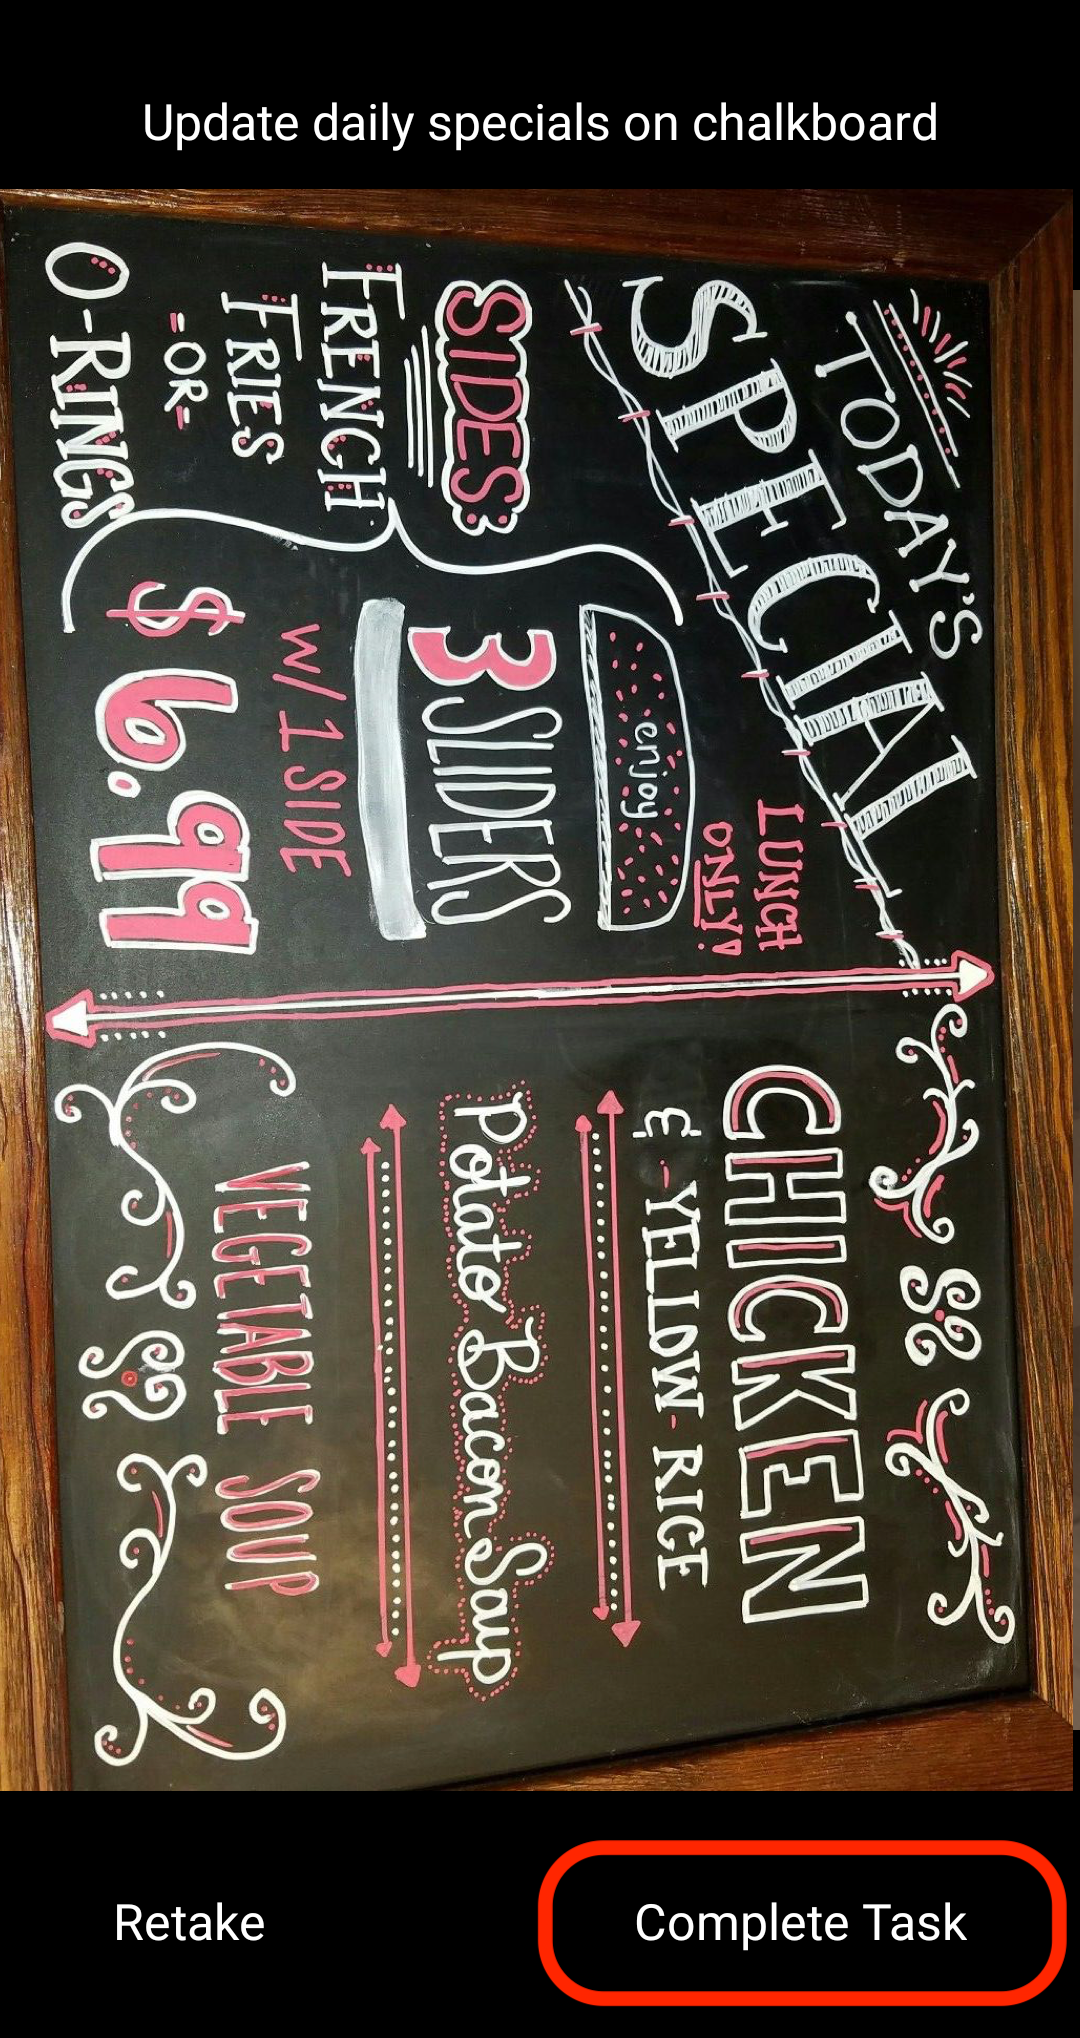 Update daily specials on chalkboard
TODAY'S
SPECIAL
LUNCH
ONLY!
enjoy
3 SLIDERS
W/ 1 SIDE
$6.99
SIDES:
FRENCH
FRIES
=OR=
O-RINGS
CHICKEN
& - YELLOW - RICE
Potato Bacon Soup
VEGETABLE SOUP
Retake
Complete Task